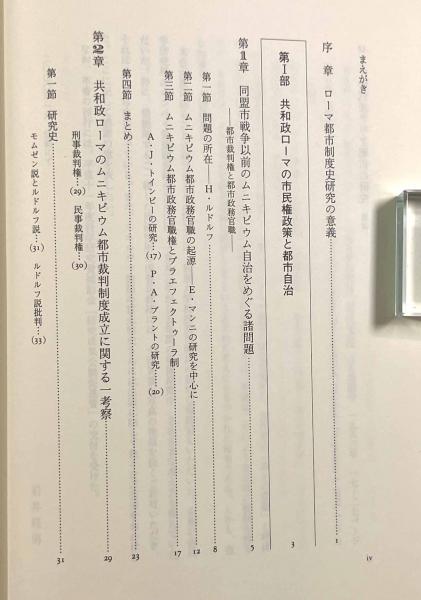 まえがき……iv
序章 ローマ都市制度史研究の意義……1
第Ⅰ部 共和政ローマの市民権政策と都市自治……3
第1章 同盟市戦争以前のムニキピウム自治をめぐる諸問題……5
――都市裁判権と都市政務官職――
第一節 問題の所在――H・ルドルフ……8
第二節 ムニキピウム都市政務官職の起源――E・マンニの研究を中心に……12
第三節 ムニキピウム都市政務官職権とプラエフェクトゥーラ制……17
A・J・トインビーの研究…(17) P・A・ブラントの研究…(20)
第四節 まとめ……23
第2章 共和政ローマのムニキピウム都市裁判制度成立に関する一考察……29
刑事裁判権…(29) 民事裁判権…(30)
第一節 研究史……31
モムゼン説とルドルフ説…(31) ルドルフ説批判…(33)